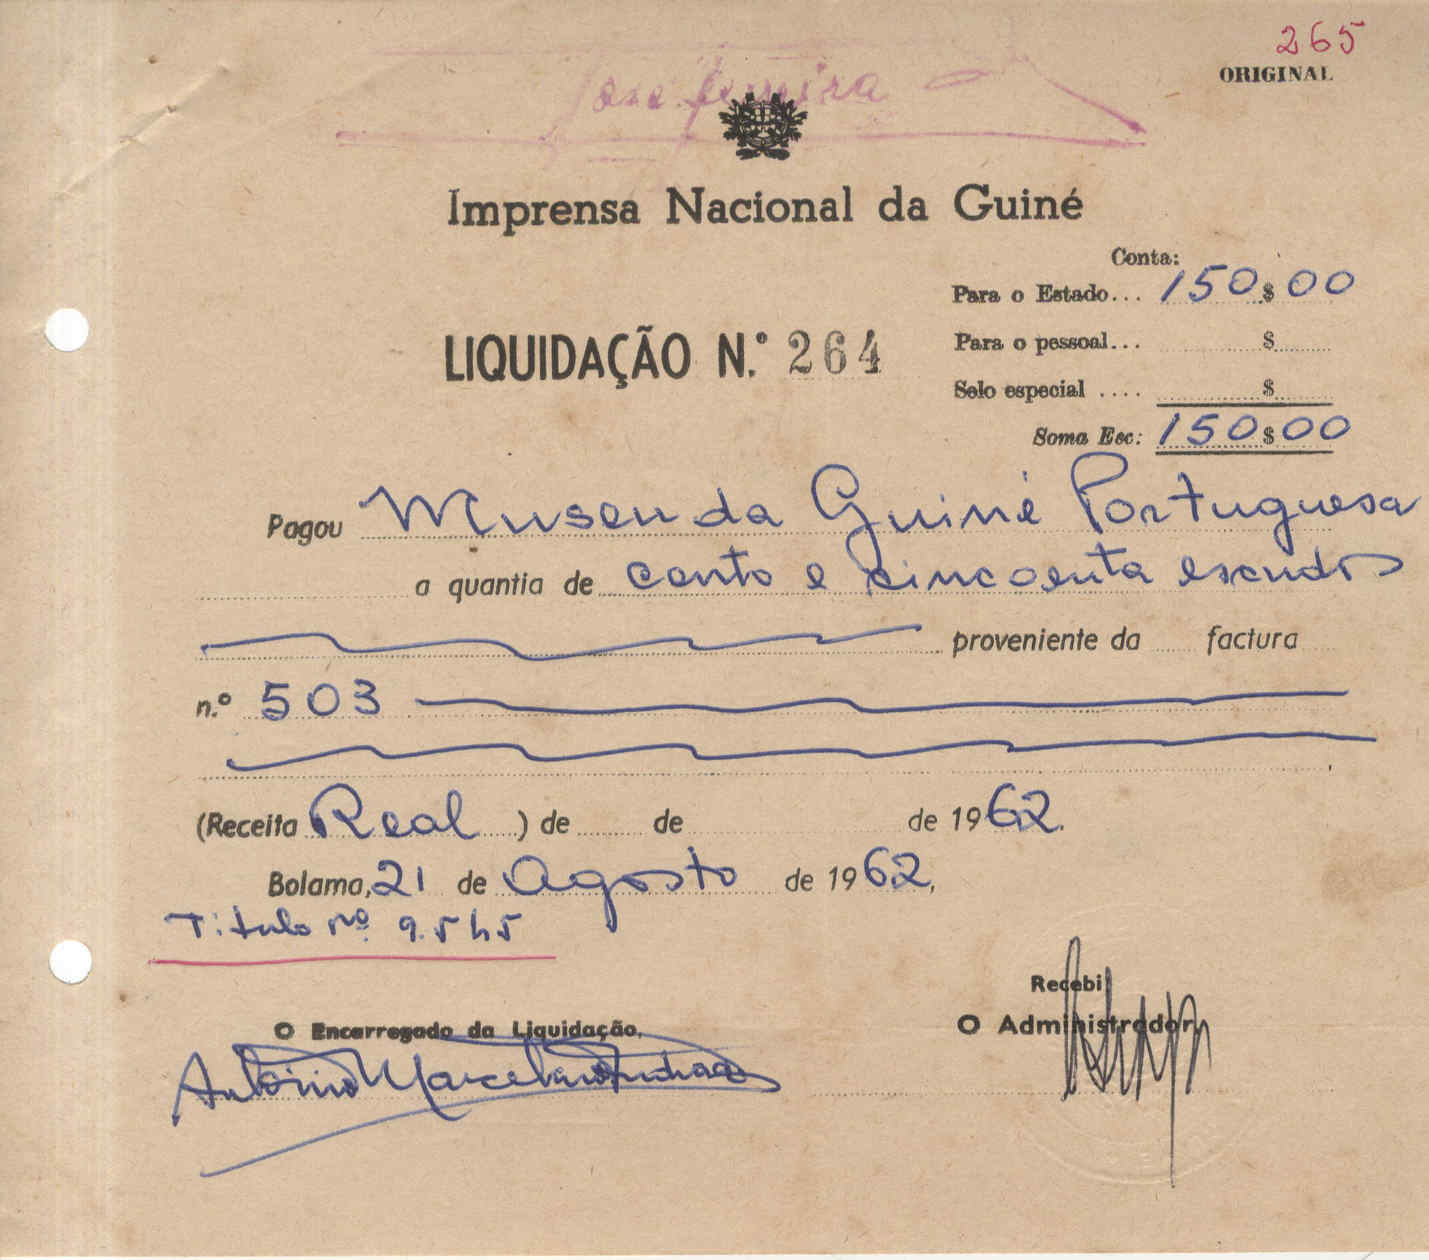 265
ORIGINAL
Imprensa Nacional da Guiné
Conta:
Para o Estado... 150$00
LIQUIDAÇÃO N.º 264
Para o pessoal... $
Selo especial .... $
Soma Esc: 150$00
Pagou Museu da Guiné Portuguesa
a quantia de cento e cincoenta escudos
proveniente da factura
n.º 503
(Receita Real) de de de 1962.
Bolama, 21 de Agosto de 1962,
Titulo nº 9.545
Recebi
O Encarregado da Liquidação,
O Administrador,
António Marcelino